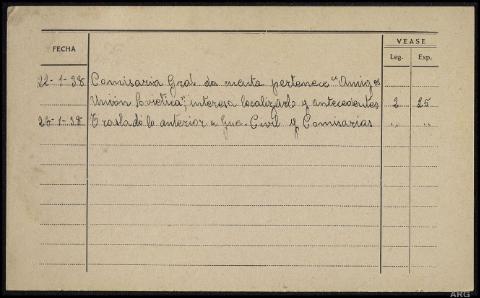 VEASE
FECHA Leg. Exp.
22-1-38 Comisaria Gral. da cuenta pertenece "Amigos
Unión Sovietica", interesa localizarlo y antecedentes 2 25
26-1-38 Traslado lo anterior a Gua. Civil y Comisarias " "
ARG